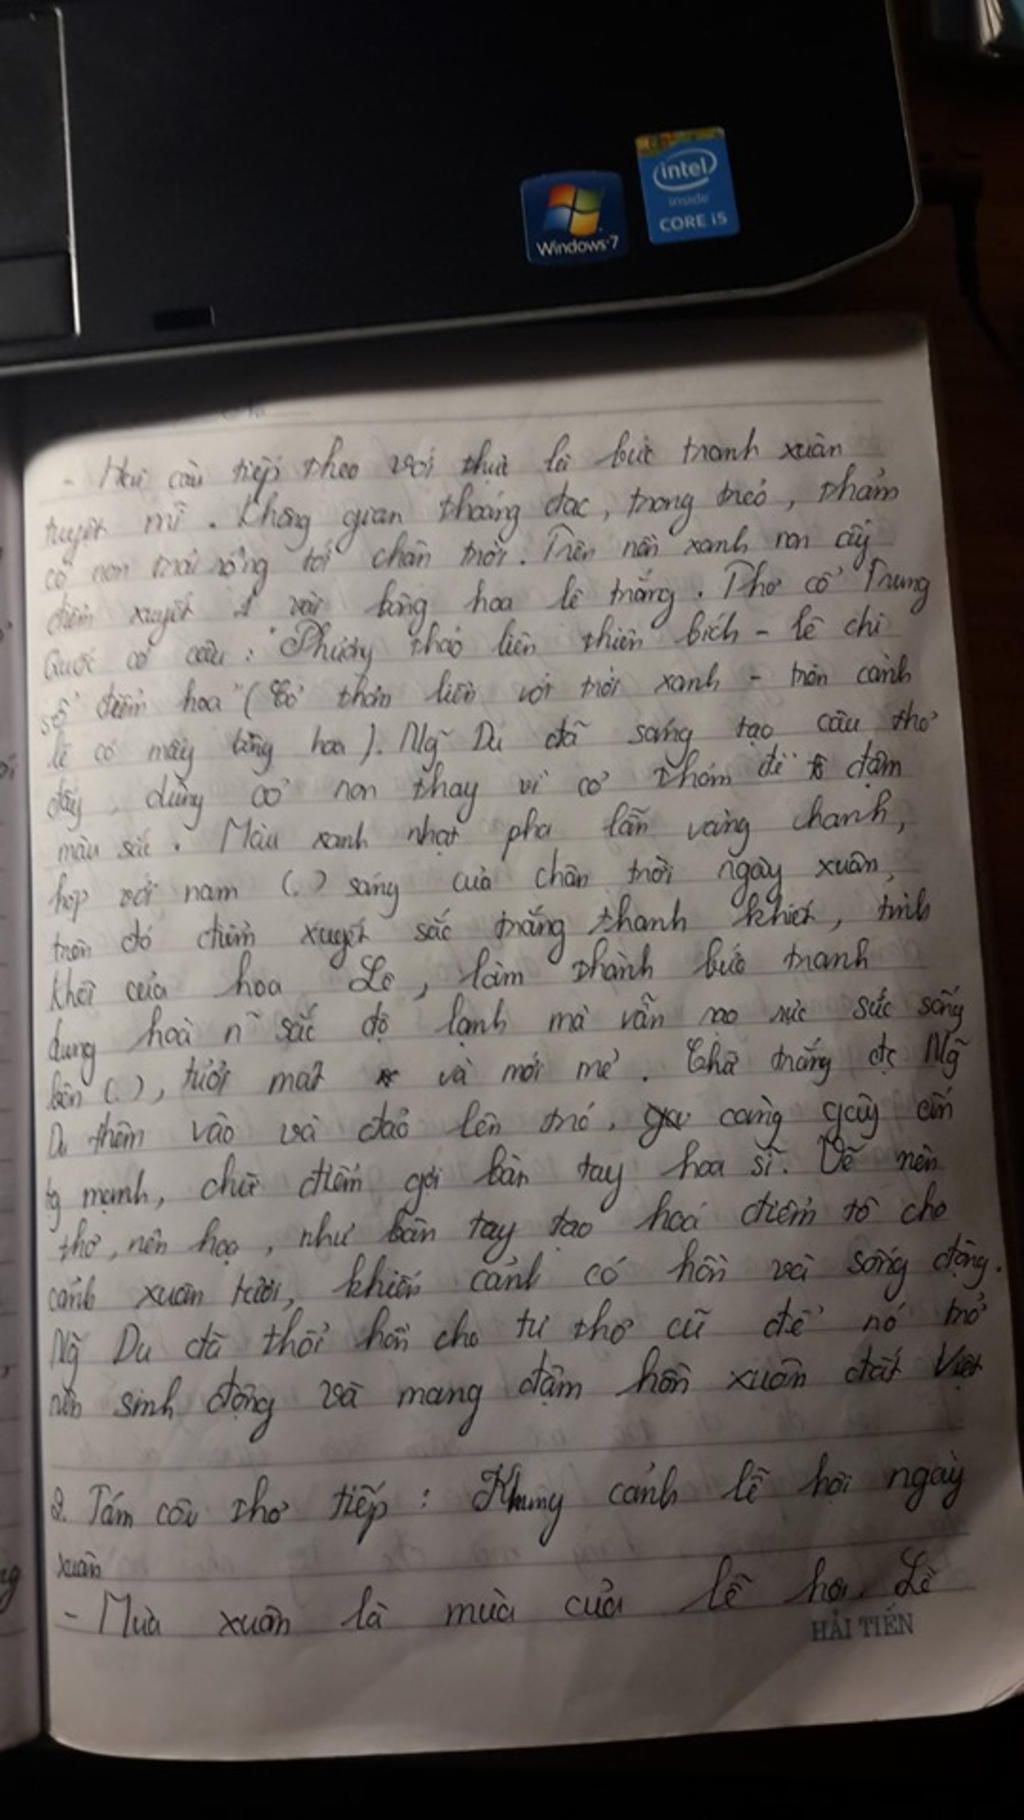 intel
inside
CORE i5
Windows 7
- Hai câu tiếp theo với thực là bức tranh xuân
tuyệt mĩ. Không gian thoáng đạc, trong trẻo, thảm
cỏ non trải rộng tới chân trời. Trên nền xanh non ấy
điểm xuyết 1 vài bông hoa lê trắng. Thơ cổ Trung
Quốc có câu: "Phương thảo liên thiên bích - lê chi
sổ điểm hoa" (Cỏ thơm liền với trời xanh - trên cành
lê có mấy bông hoa). Ng~ Du đã sáng tạo câu thơ
đấy, dùng cỏ non thay vì cỏ thơm để tô đậm
màu sắc. Màu xanh nhạt pha lẫn vàng chanh,
hợp với nam (.) sáng của chân trời ngày xuân,
trên đó điểm xuyết sắc trắng thanh khiết, tinh
khôi của hoa Lê, làm thành bức tranh
dung hoà n~ sắc độ lạnh mà vẫn rạo rực sức sống
bên (.), tươi mát và mới mẻ. Chữ trắng đc Ng~
Du thêm vào và đảo lên trc, càng gây ấn
tg mạnh, chữ điểm gợi bàn tay hoạ sĩ. Vẽ nên
thơ, nên hoạ, như bàn tay tạo hoá điểm tô cho
cảnh xuân tươi, khiến cảnh có hồn và sống động.
Ng~ Du đã thổi hồn cho tứ thơ cũ để nó trở
nên sinh động và mang đậm hồn xuân đất Việt
2. Tám câu thơ tiếp: Khung cảnh lễ hội ngày
xuân
- Mùa xuân là mùa của lễ hội. Lễ
HẢI TIẾN